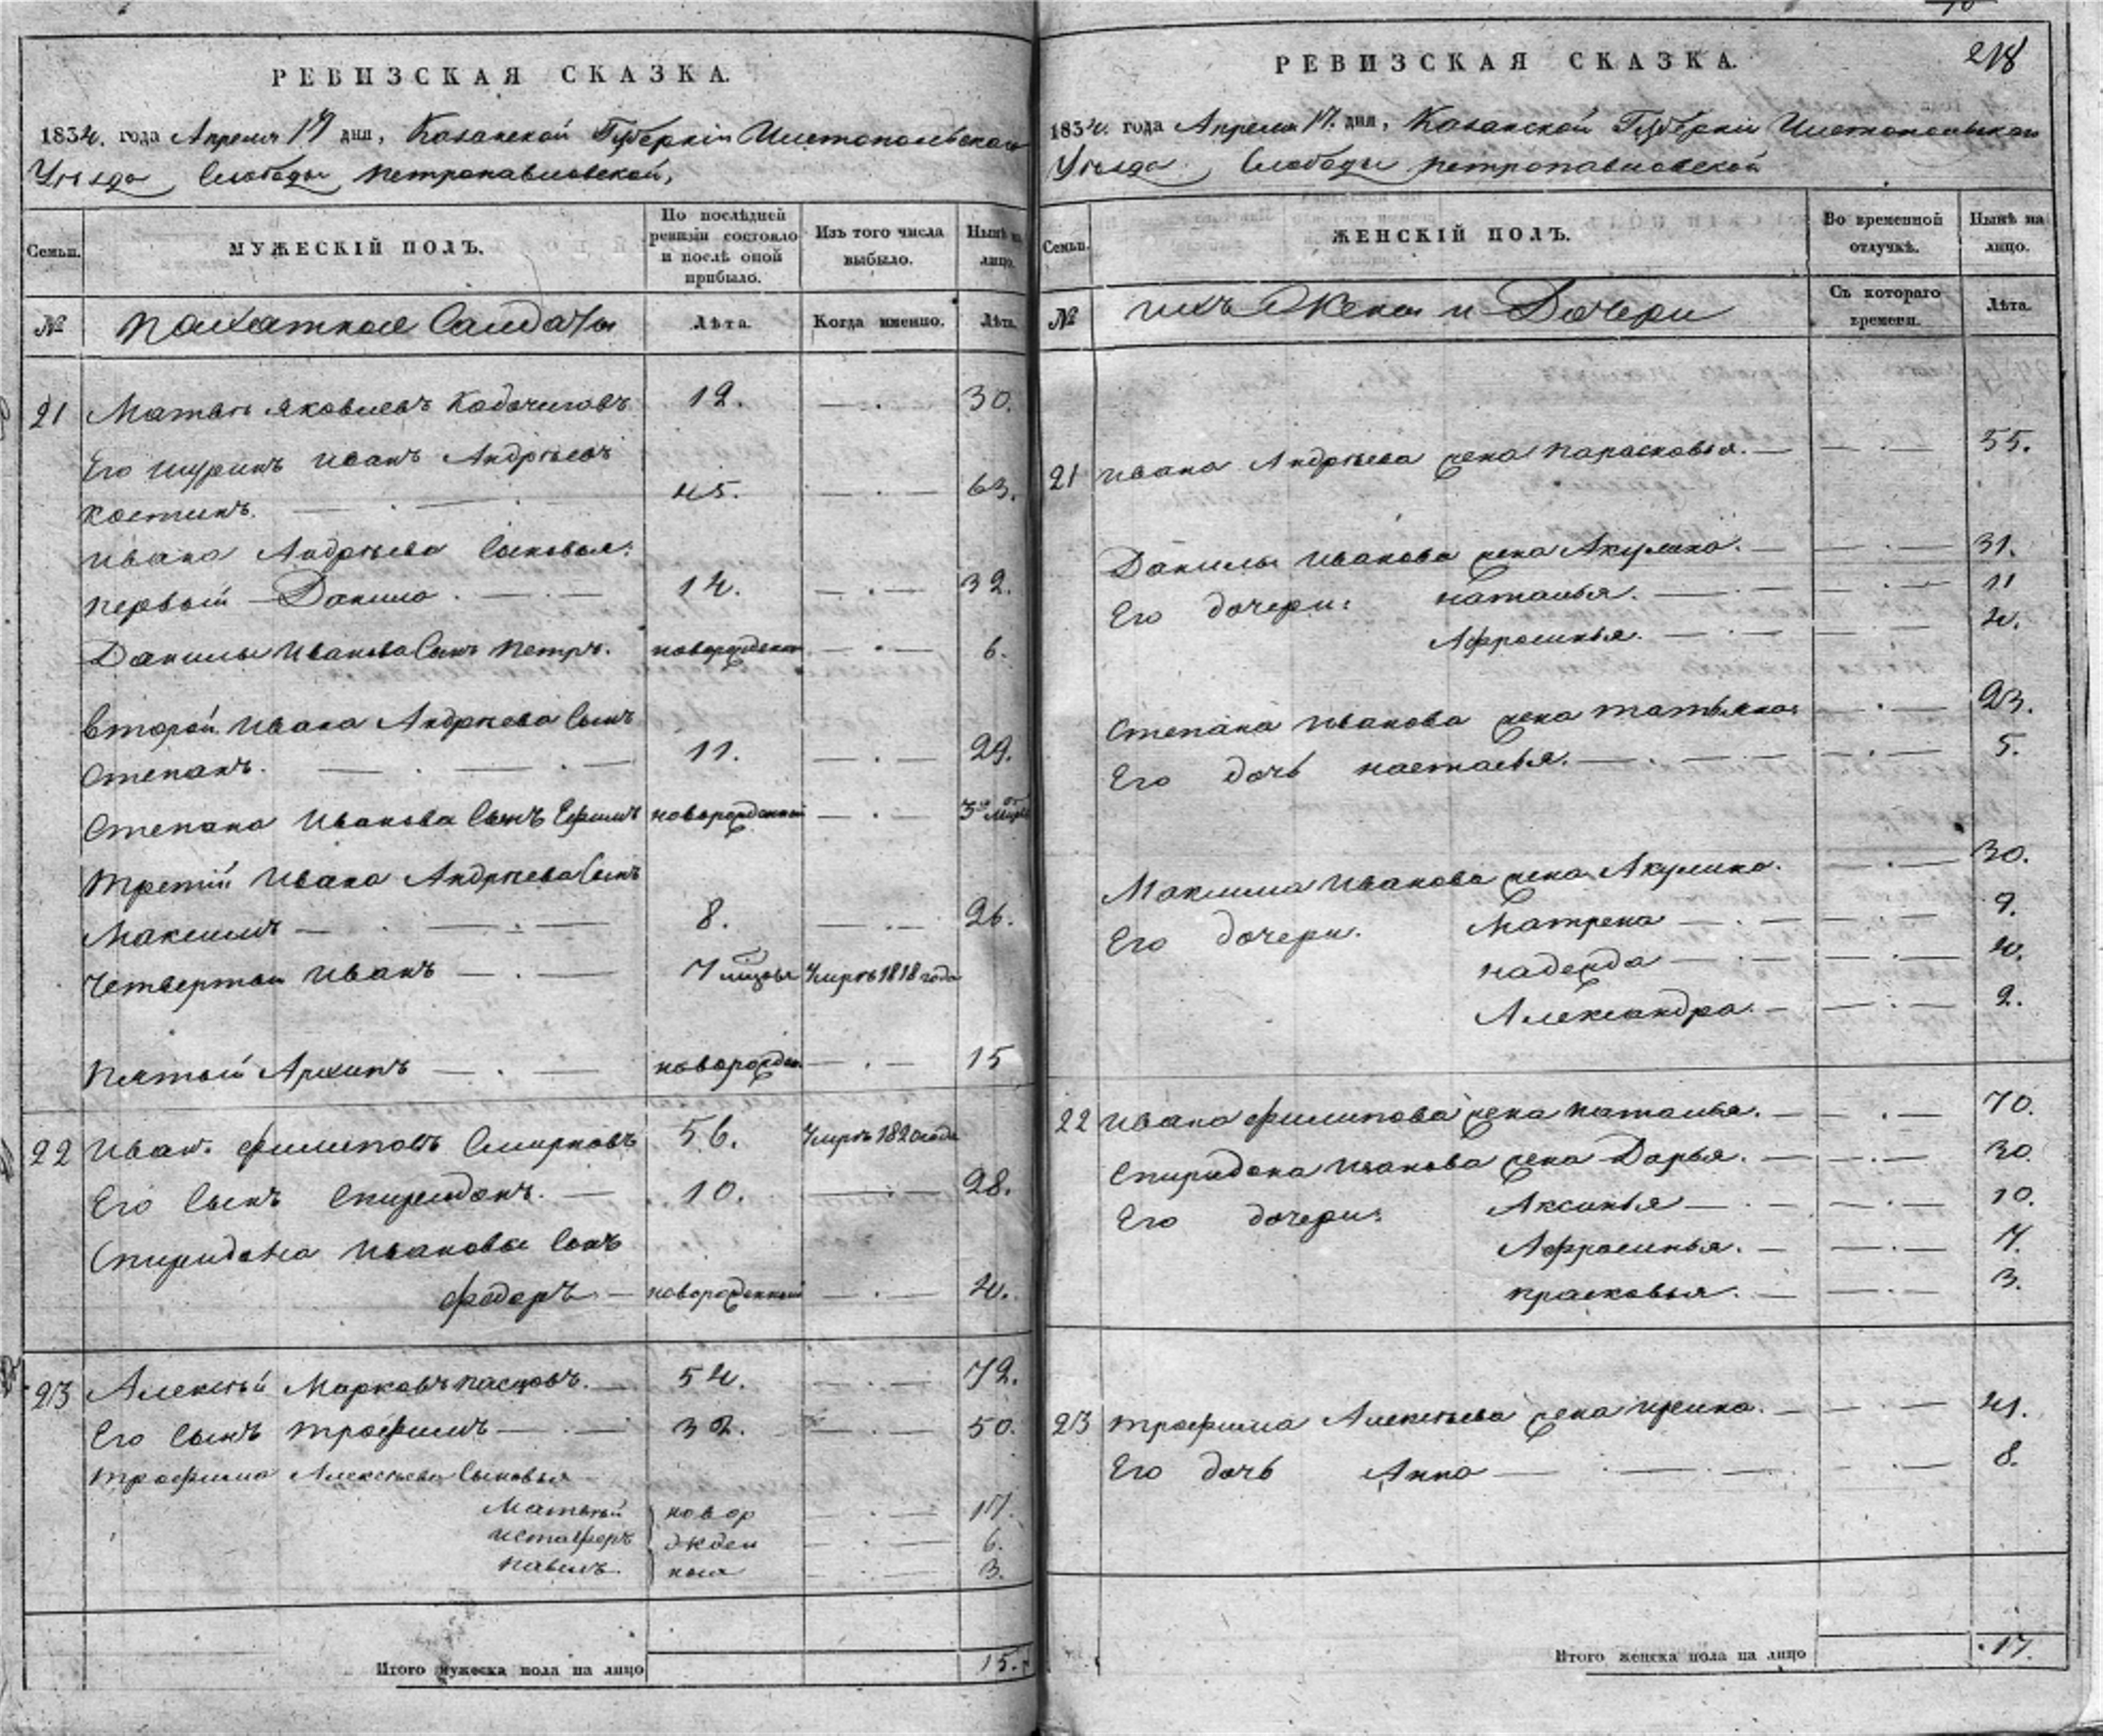 218
РЕВИЗСКАЯ СКАЗКА.
1834. года Апреля 17 дня, Казанской Губерніи Чистопольскаго
Уѣзда Слободы петропавловской,
Семьи.
МУЖЕСКІЙ ПОЛЪ.
По послѣдней ревизіи состояло и послѣ оной прибыло.
Изъ того числа выбыло.
Нынѣ на лицо.
№
пахатные Салдаты
Лѣта.
Когда именно.
Лѣта.
21 Матвѣй Яковлевъ 12. 30.
Его шуринъ Иванъ Андрѣевъ
Костинъ. 45. 63.
Ивана Андрѣева Сыновья:
первый Данило 14. 32.
Данилы Иванова Сынъ Петръ. новорожден 6.
Второй Ивана Андрѣева Сынъ
Степанъ. 11. 29.
Степана Иванова Сынъ Ефимъ новорожденный 3
Третій Ивана Андрѣева Сынъ
Максимъ 8. 26.
Четвертой Иванъ 7 Умръ 1818 года
Пятый Архипъ новорожден 15
22 Иван. Филиповъ Смирновъ 56. Умръ 1820 года
Его Сынъ Спиридонъ. 10. 28.
Спиридона Иванова Сынъ
Федоръ новорожденный 4.
23 Алексѣй Марковъ 54. 72.
Его Сынъ Трофимъ 32. 50.
Трофима Алексѣева Сыновья
Матвѣй новор 17.
ожден 6.
Павилъ ныя 3.
Итого мужеска пола на лицо 15.
РЕВИЗСКАЯ СКАЗКА.
1834. года Апреля 17. дня, Казанской Губерніи Чистопольскаго
Уѣзда Слободы петропавловской
Семьи.
ЖЕНСКІЙ ПОЛЪ.
Во временной отлучкѣ.
Нынѣ на лицо.
№
ихъ Жены и Дочери
Съ котораго времени.
Лѣта.
21 Ивана Андрѣева жена Парасковья. 55.
Данилы Иванова жена Акулина. 31.
Его дочери: Наталья. 11
Афросинья. 4.
Степана Иванова жена Татьяна 23.
Его дочь Настасья. 5.
Максима Иванова жена Акулина. 30.
Его дочери. Матрена 9.
Надежда 4.
Александра. 2.
22 Ивана Филипова жена Наталья. 70.
Спиридона Иванова жена Дарья. 30
Его дочери: Аксинья 10.
Афросинья. 7.
Прасковья. 3.
23 Трофима Алексѣева жена Ирина. 41.
Его дочь Анна 8.
Итого женска пола на лицо 17.